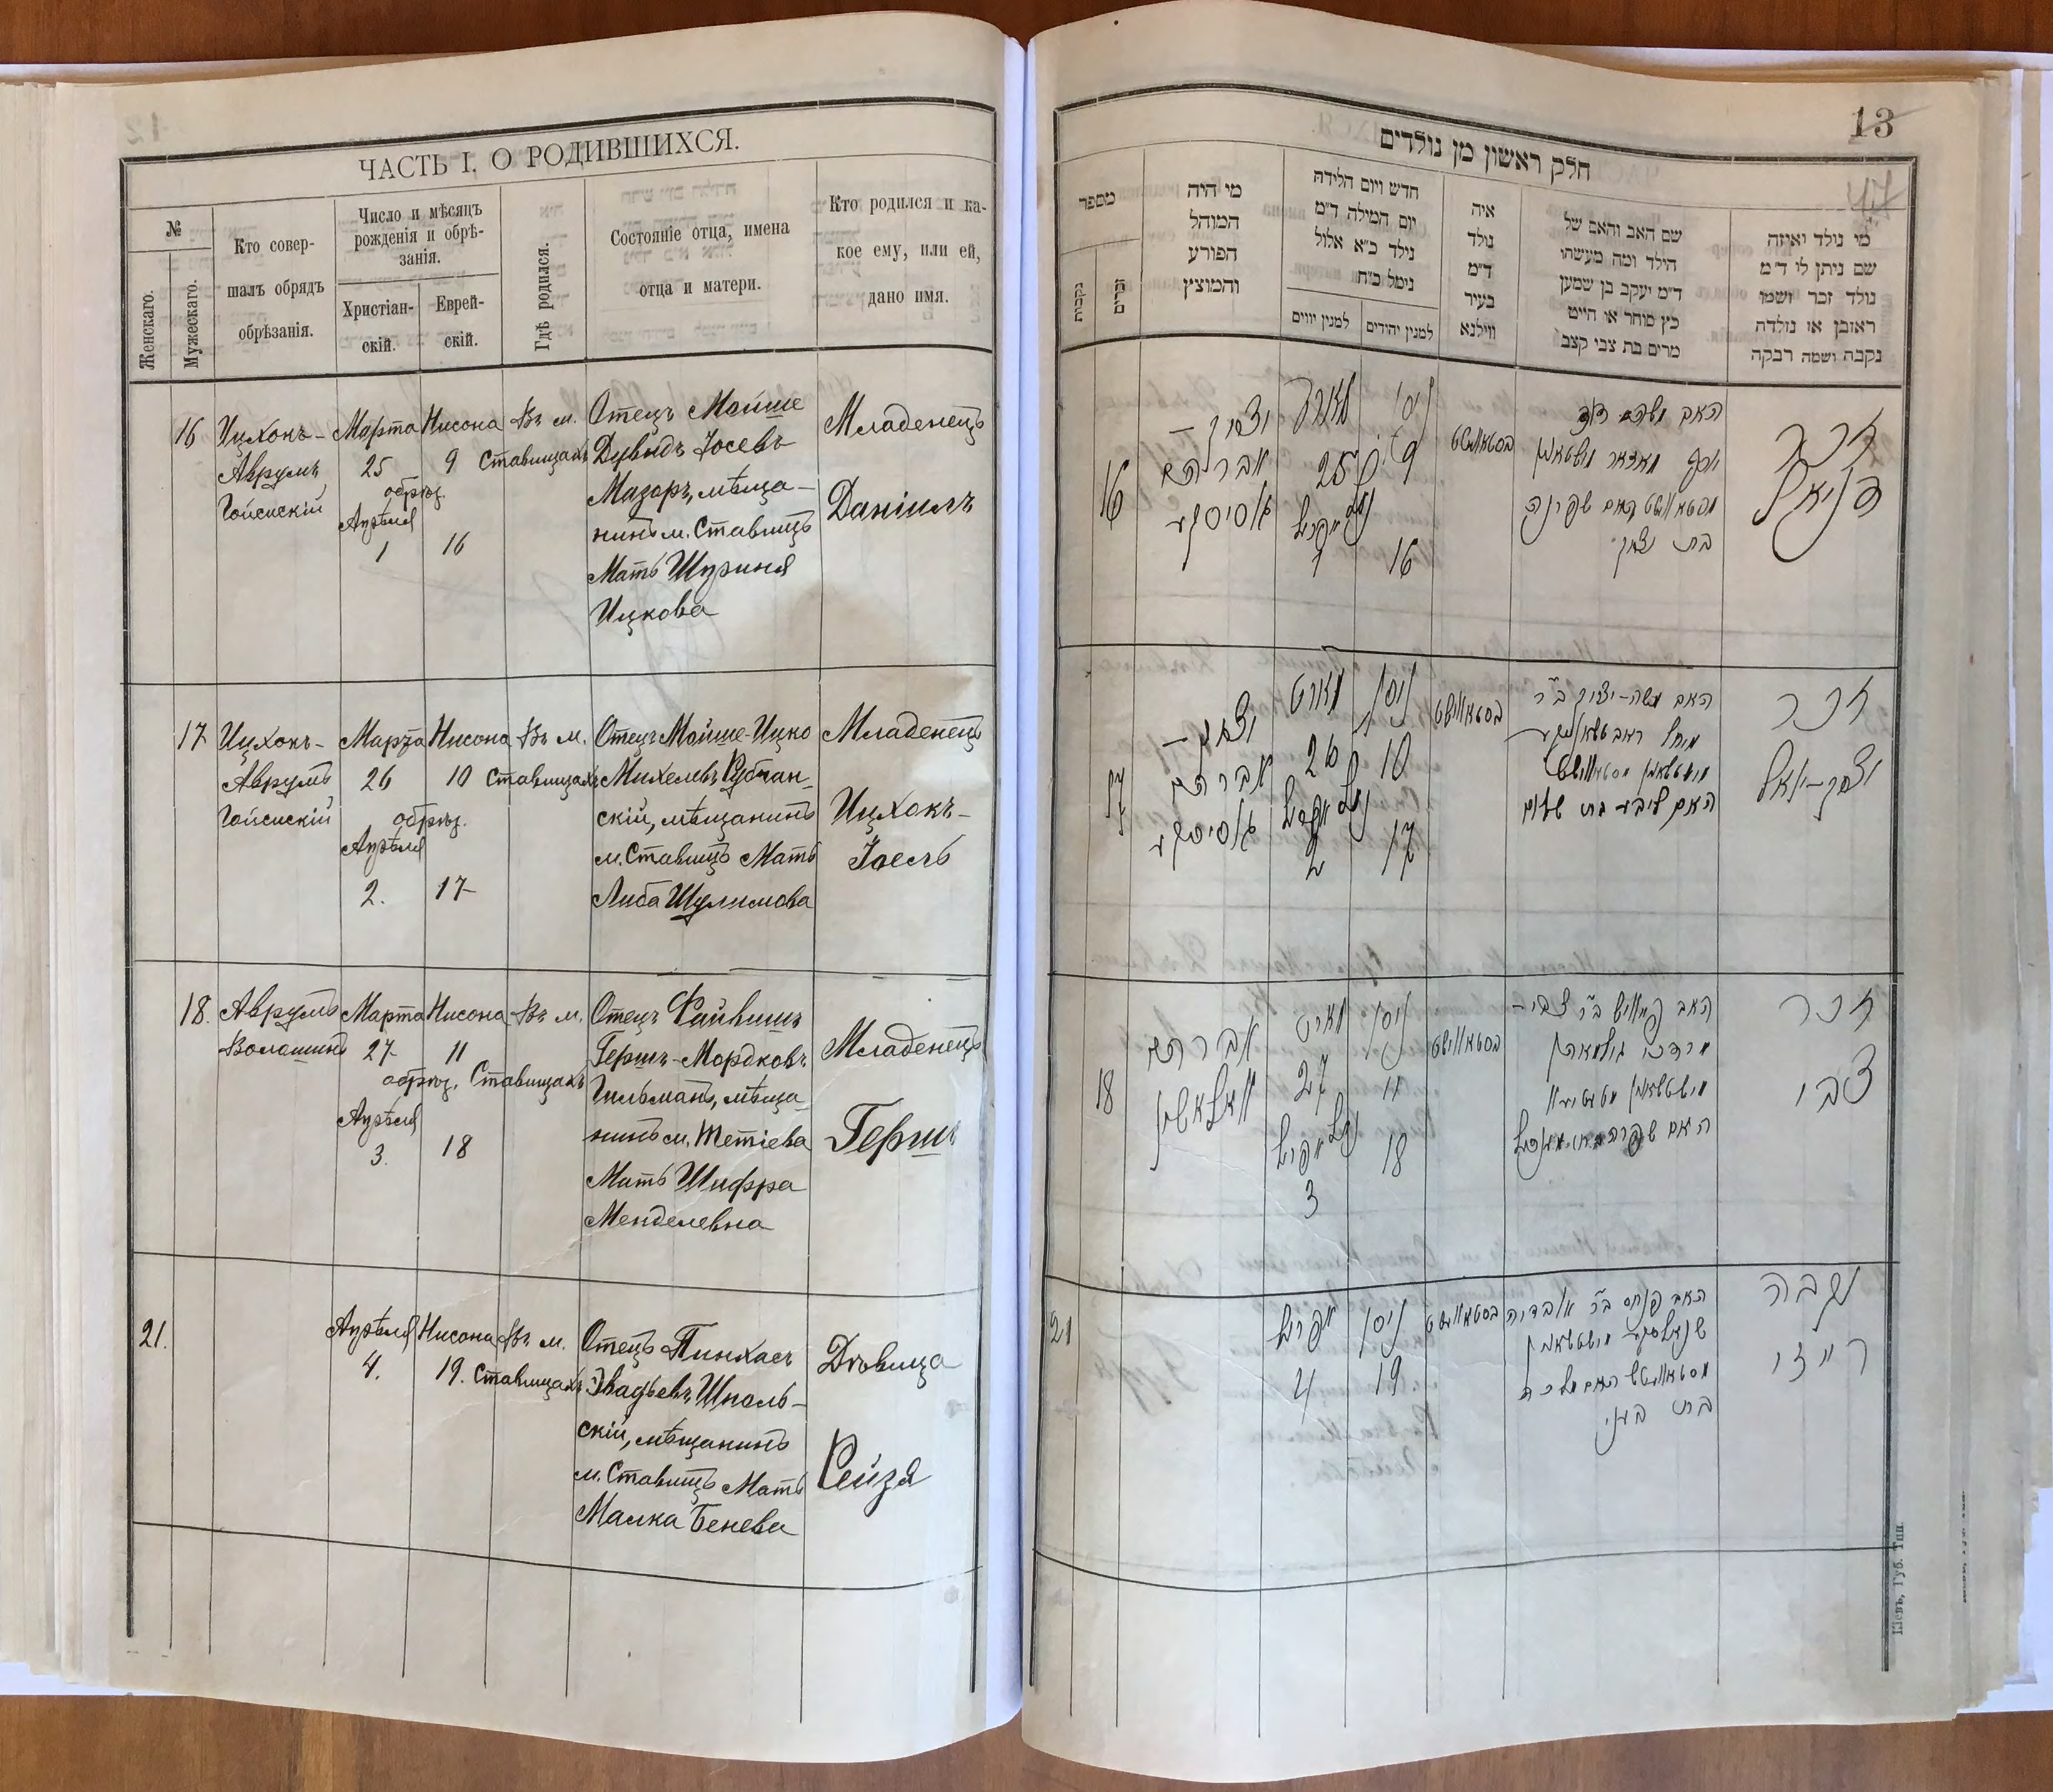 ЧАСТЬ I, О РОДИВШИХСЯ.
№
Женскаго.
Мужескаго.
Кто совер-
шалъ обрядъ
обрѣзанія.
Число и мѣсяцъ
рожденія и обрѣ-
занія.
Христіан-
скій.
Еврей-
скій.
Гдѣ родился.
Состояніе отца, имена
отца и матери.
Кто родился и ка-
кое ему, или ей,
дано имя.
16
Ицхокъ-
Аврумъ
Гойсискій
Марта
25
обрѣз.
Апрѣля
1
Нисона
9
16
Въ м.
Ставищахъ
Отецъ Мойше
Дувидъ Іосевъ
Мазоръ, мѣща-
нинъ м. Ставищъ
Мать
Ицкова
Младенецъ
Даніилъ
17
Ицхокъ-
Аврумъ
Гойсискій
Марта
26
обрѣз.
Апрѣля
2.
Нисона
10
17
Въ м.
Ставищахъ
Отецъ Мойше-Ицко
Михелевъ
скій, мѣщанинъ
м. Ставищъ Мать
Либа Шулимова
Младенецъ
Ицхокъ-
Іоель
18.
Аврумъ
Волошинъ
Марта
27
обрѣз.
Апрѣля
3.
Нисона
11
18
Въ м.
Ставищахъ
Отецъ Файвишъ
Гершъ-Мордковъ
Гильманъ, мѣща-
нинъ м. Тетіева
Мать Шифра
Менделевна
Младенецъ
Гершъ
21.
Апрѣля
4.
Нисона
19.
Въ м.
Ставищахъ
Отецъ Пинхасъ
Школь-
скій, мѣщанинъ
м. Ставищъ Мать
Малка Бенева
Дѣвица
Рейзя
13
חלק ראשון מן נולדים
מספר
נקבות
זכרים
מי היה
המוהל
הפורע
והמוצץ
חדש ויום הלידה
יום המילה ד"מ
נולד כ"א אלול
נימל כ"ח
למנין יווים
למנין יהודים
איה
נולד
ד"מ
בעיר
ווילנא
שם האב והאם של
הילד ומה מעשהו
ד"מ יעקב בן שמעון
כץ סוחר או חייט
מרים בת צבי קצב
מי נולד ואיזה
שם ניתן לו ד"מ
נולד זכר ושמו
ראובן או נולדה
נקבה ושמה רבקה
16
יצחק –
אברהם
מארט
25
נימל
אפריל
1
ניסן
9
16
בסטאווישט
בת יצחק
זכר
דניאל
17
יצחק –
אברהם
מארט
26
נימל
אפריל
2
ניסן
10
17
בסטאווישט
האם ליבע בת שלום
זכר
יצחק-יואל
18
אברהם
וואלאשין
מארט
27
נימל
אפריל
3
ניסן
11
18
בסטאווישט
זכר
צבי
21
אפריל
4
ניסן
19
בסטאווישט
האב פנחס ב"ר
מסטאווישט האם מלכה
בת
נקבה
רייזי
Кіевъ, Губ. Тип.